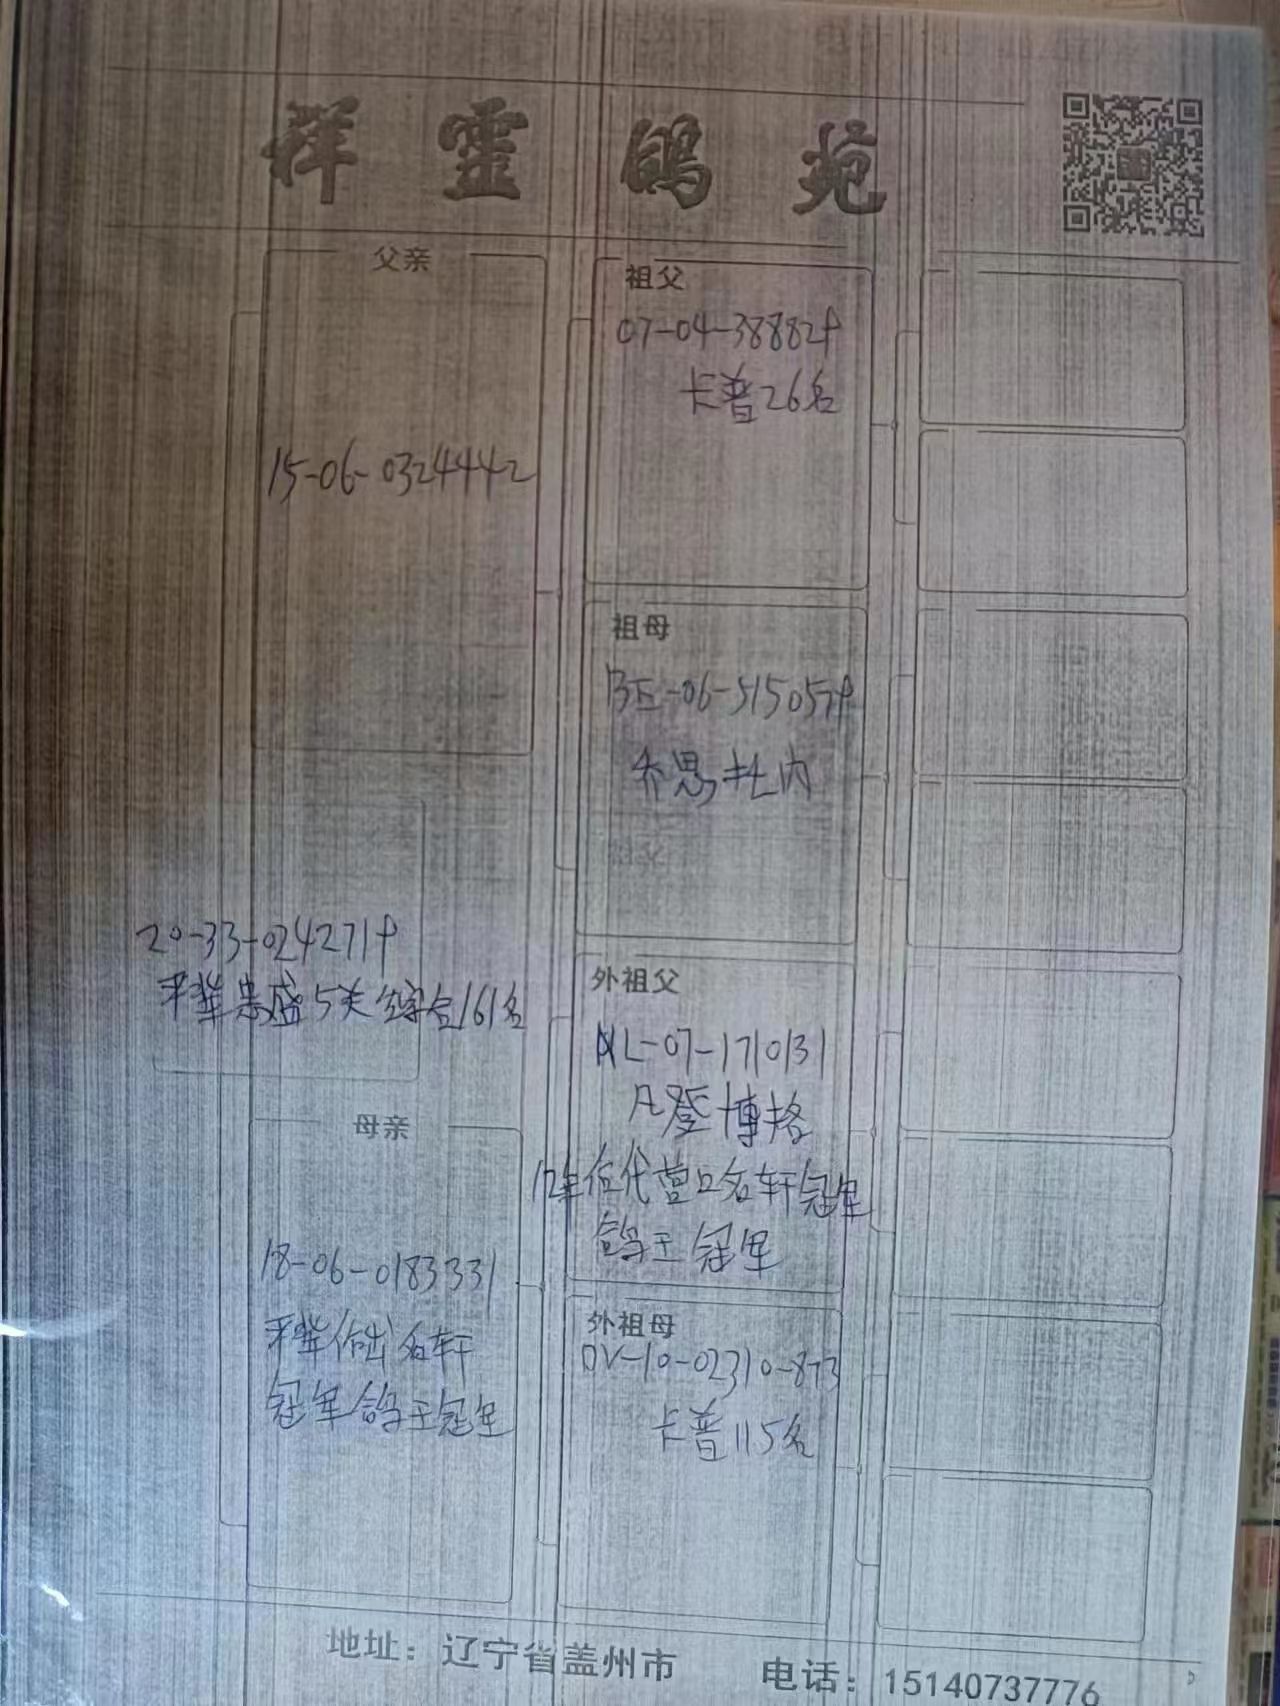 祥靈鸽苑
父亲
15-06-0324442
祖父
07-04-38882♀
卡普26名
祖母
BE-06-515057♀
乔思杜内
祖父
20-33-024271♀
平辈惠盛5关综合161名
外祖父
NL-07-1710131
凡登博格
12年后代营口名轩冠军
鸽王冠军
母亲
18-06-0183331
平辈作出名轩
冠军鸽王冠军
外祖母
DV-10-02310-873
卡普115名
地址：辽宁省盖州市 电话：15140737776